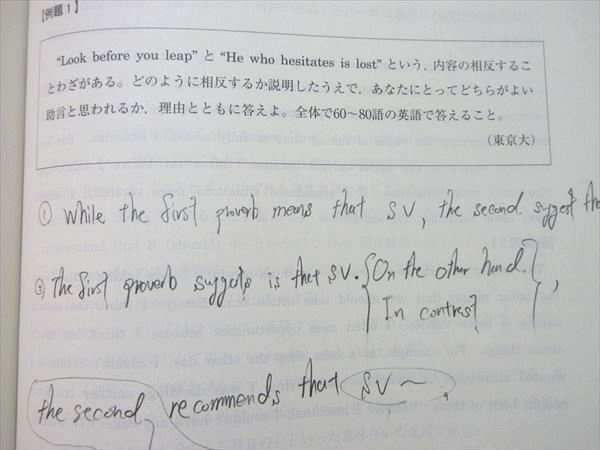 【例題1】
"Look before you leap" と "He who hesitates is lost" という，内容の相反するこ
とわざがある。どのように相反するか説明したうえで，あなたにとってどちらがよい
助言と思われるか，理由とともに答えよ。全体で60〜80語の英語で答えること。
（東京大）
① While the first proverb means that SV, the second suggest the
② The first proverb suggests is that SV. { On the other hand.
In contrast } ,
the second, recommends that SV 〜,